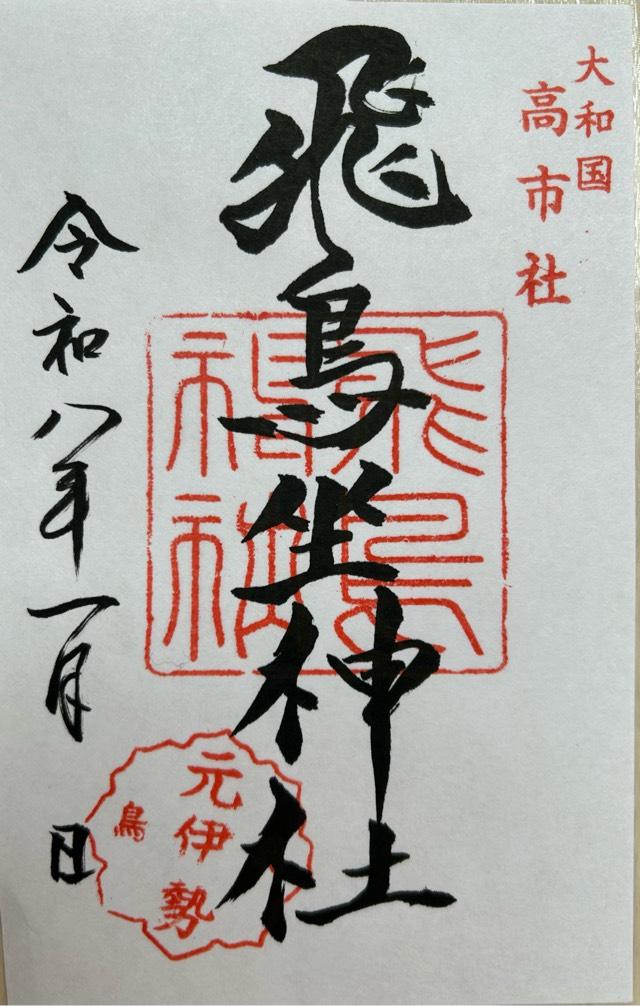 大和国
高市社
飛鳥坐神社
飛鳥
神社
元伊勢
鳥
令和八年一月 日